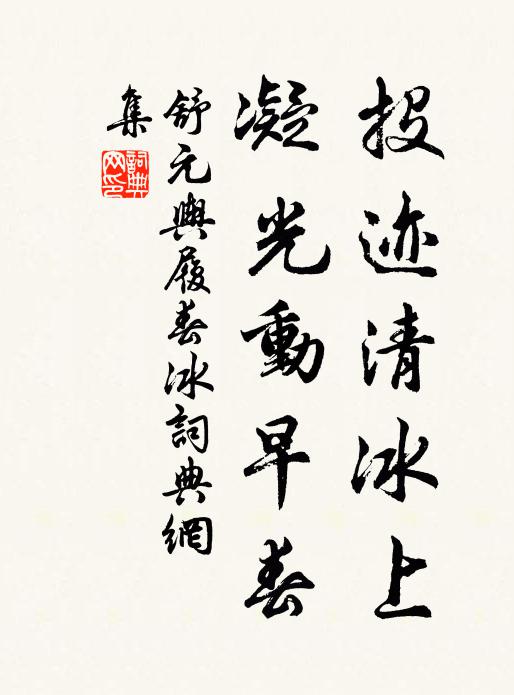 投迹清冰上
凝光動早春
舒元輿履春冰詞典網
集
詞典
网印